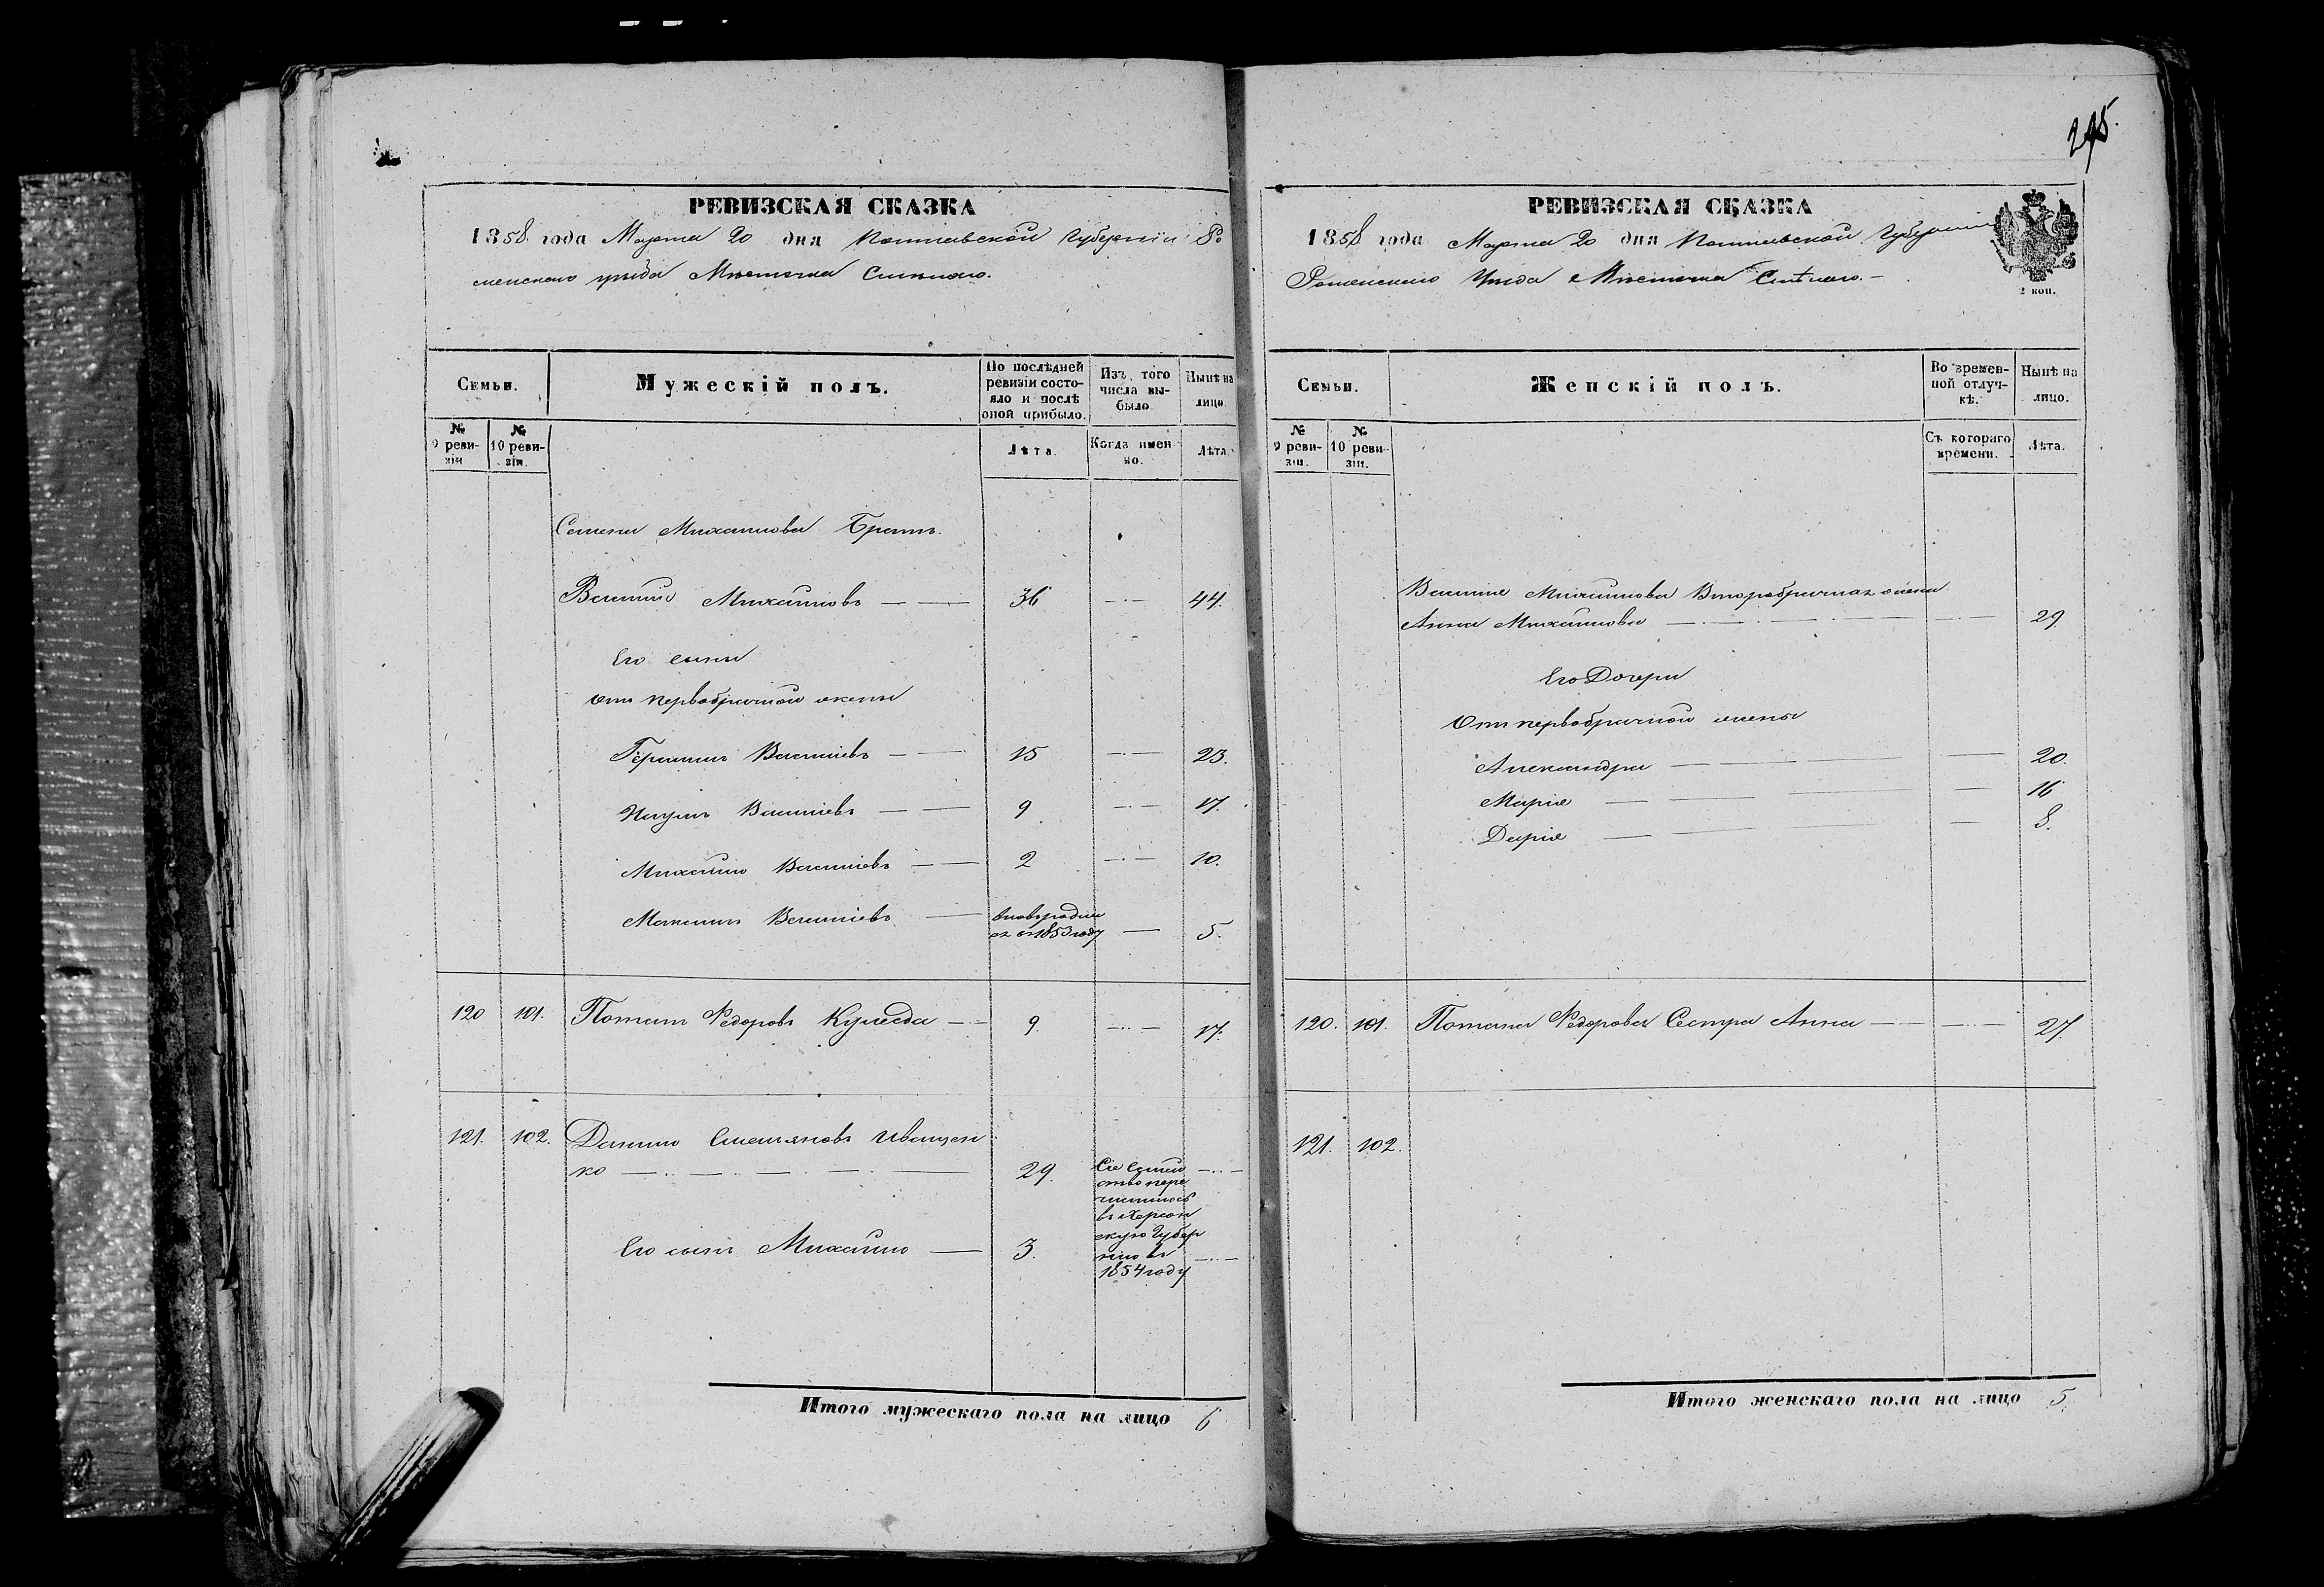 295.
РЕВИЗСКАЯ СКАЗКА
1858 года Марта 20 дня Полтавской Губерніи Ро
менскаго уѣзда Мѣстечка Смѣлаго.
Семьи.
Мужескій полъ.
По послѣдней ревизіи состояло и послѣ оной прибыло.
Изъ того числа выбыло
Нынѣ на лицо.
№ 9 ревизіи
№ 10 ревизіи.
Лѣта.
Когда именно.
Лѣта.
Семена Михайлова Братъ.
Василій Михайловъ — — 36 — — 44.
Его сыны
отъ первобрачной жены
Герасимъ Васильевъ — — 15 — — 23.
Наумъ Васильевъ — — 9 — — 17.
Михайло Васильевъ — — 2 — — 10.
Васильевъ — вновьродил
ся въ 1853 году — 5.
120 101. Потапъ Федоровъ Кулябда — 9. — — 17.
121. 102. Данило Емельяновъ Иващен
ко — — — — 29. Сіе Семей — —
ство пере
числилось
въ Херсон
скую Губер
нію въ
1854 году
Его сынъ Михайло — 3. — —
Итого мужескаго пола на лицо 6
РЕВИЗСКАЯ СКАЗКА
1858 года Марта 20 дня Полтавской Губерніи
Роменскаго Уѣзда Мѣстечка Смѣлаго. —
2 коп.
Семьи.
Женскій полъ.
Во временной отлучкѣ.
Нынѣ на лицо.
№ 9 ревизіи.
№ 10 ревизіи.
Съ котораго времени.
Лѣта.
Василія Михайлова Второбрачная жена
Анна Михайлова — — — — — 29.
Его Дочери
Отъ первобрачной жены
Александра — — — — 20.
Марія — — — — 16
Дарія — — — — 8.
120. 101. Потапа Федорова Сестра Анна — — — 27.
121. 102.
Итого женскаго пола на лицо 5.